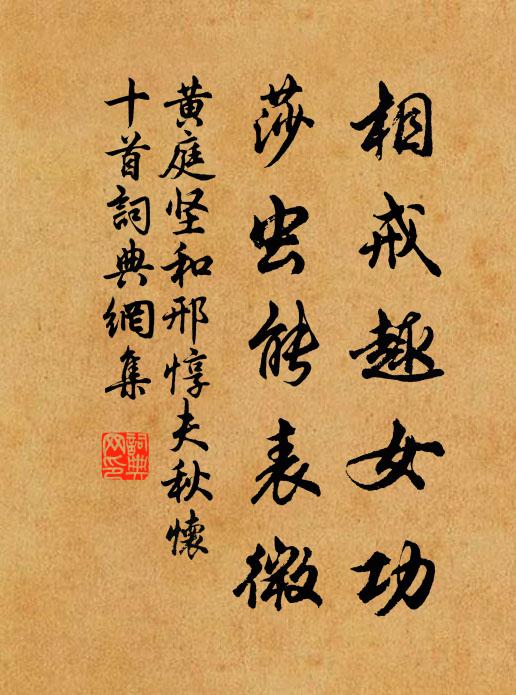 相戒趣女功
莎虫能表微
黄庭坚和邢惇夫秋懷
十首詞典網集
詞典網印